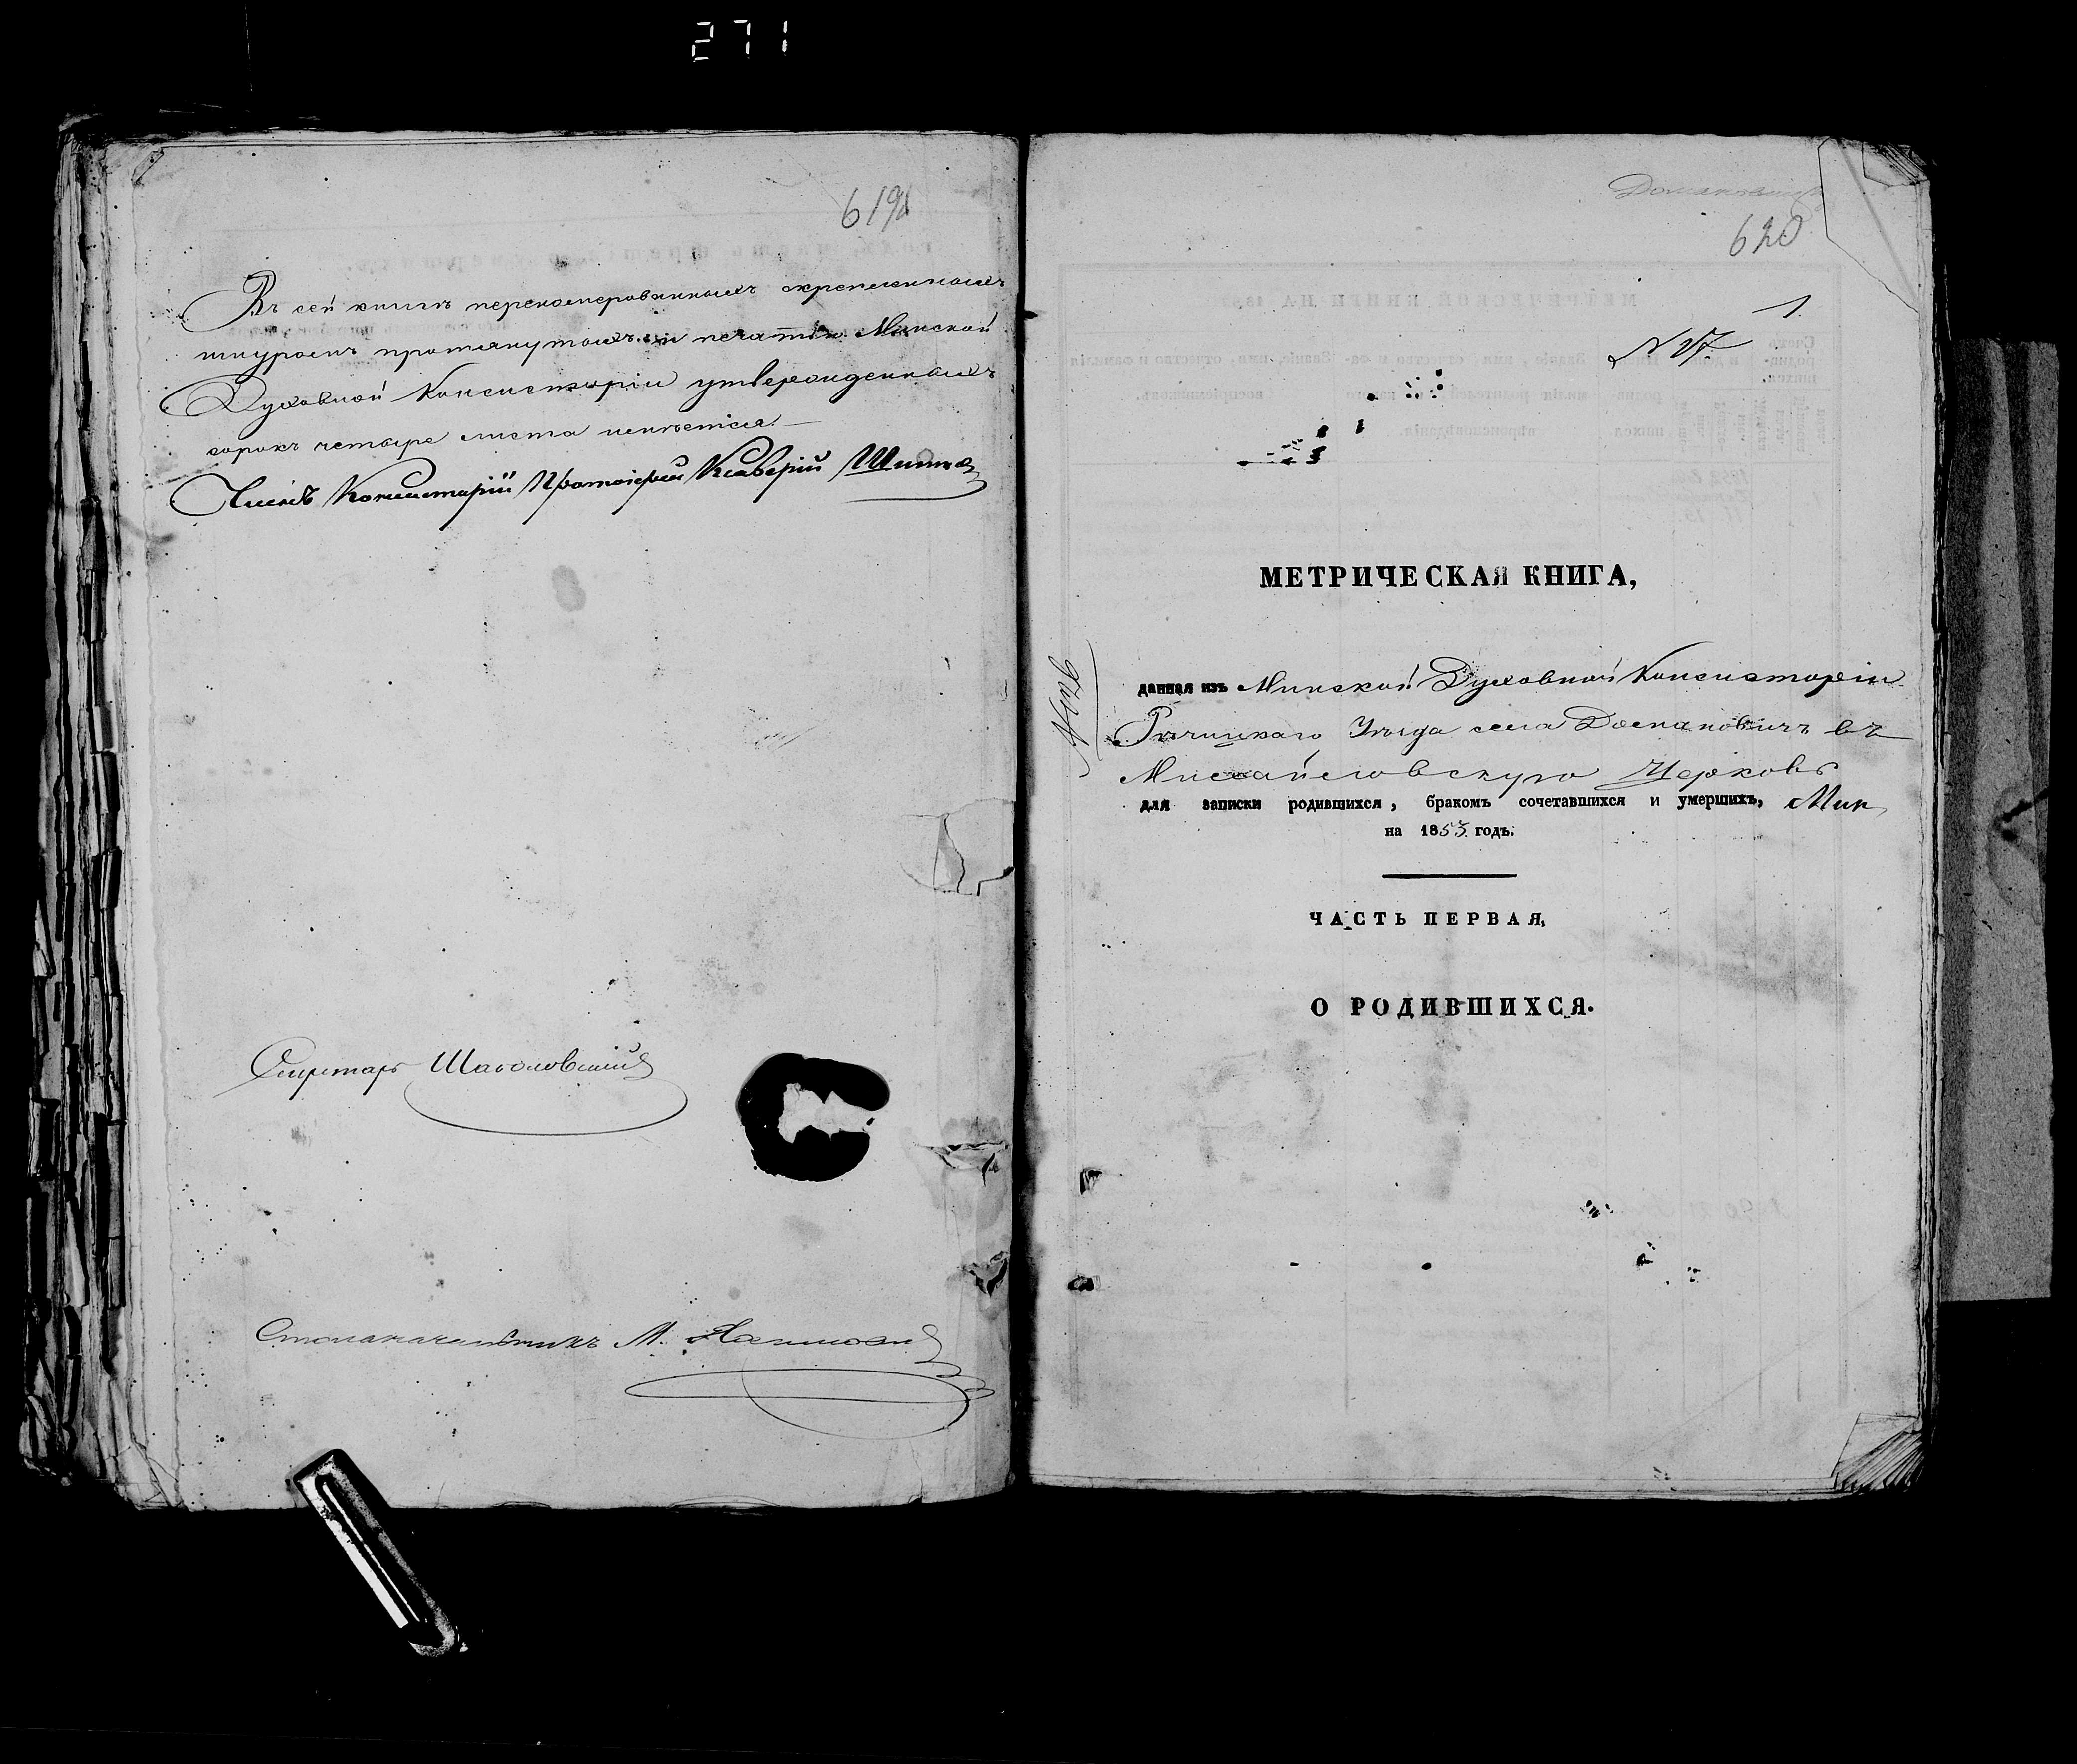 271
619
Въ сей книгѣ перенумерованныхъ скрепленныхъ
шнуромъ протянутыхъ и печатью Минской
Духовной Консисторіи утвержденныхъ
сорокъ четыре листа имѣется.
Членъ Консисторіи Протоіерей Ксаверій
Секретарь
Столоначальникъ М.
Домановичи
620
1
№ 27
МЕТРИЧЕСКАЯ КНИГА,
данная изъ Минской Духовной Консисторіи
Рѣчицкаго Уѣзда села Домановичъ въ
Михайловскую Церковь
для записки родившихся, бракомъ сочетавшихся и умершихъ,
на 1853 годъ.
ЧАСТЬ ПЕРВАЯ,
О РОДИВШИХСЯ.